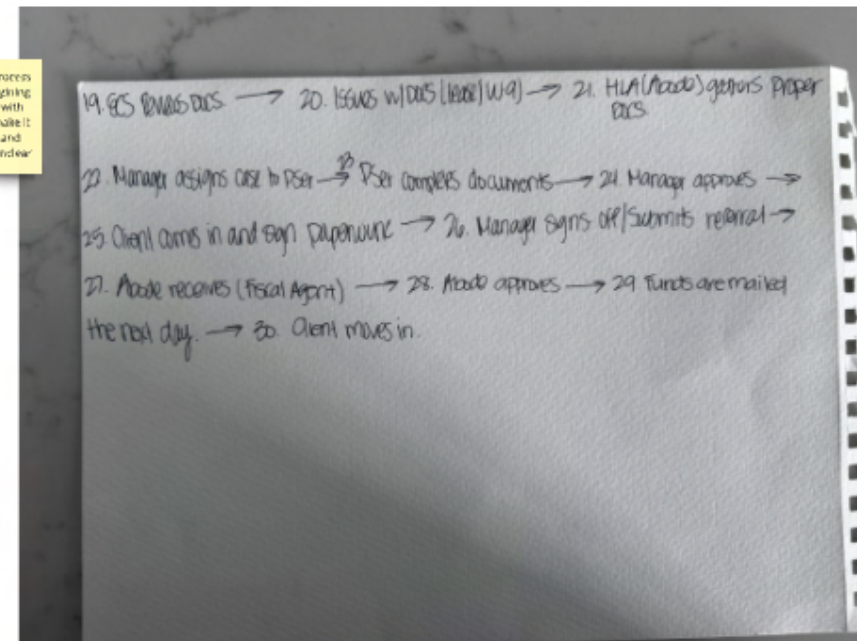 rocess
with
make it
and
unclear
19. ECS Reviews DOCS → 20. Issues w/ DOCS (lease/W9) → 21. HLA (Abode) gathers proper
DOCS
22. Manager assigns case to PSer → 23 PSer completes documents → 24. Manager approves →
25. Client comes in and sign paperwork → 26. Manager signs off/Submits referral →
27. Abode receives (Fiscal Agent) → 28. Abode approves → 29. Funds are mailed
the next day. → 30. Client moves in.